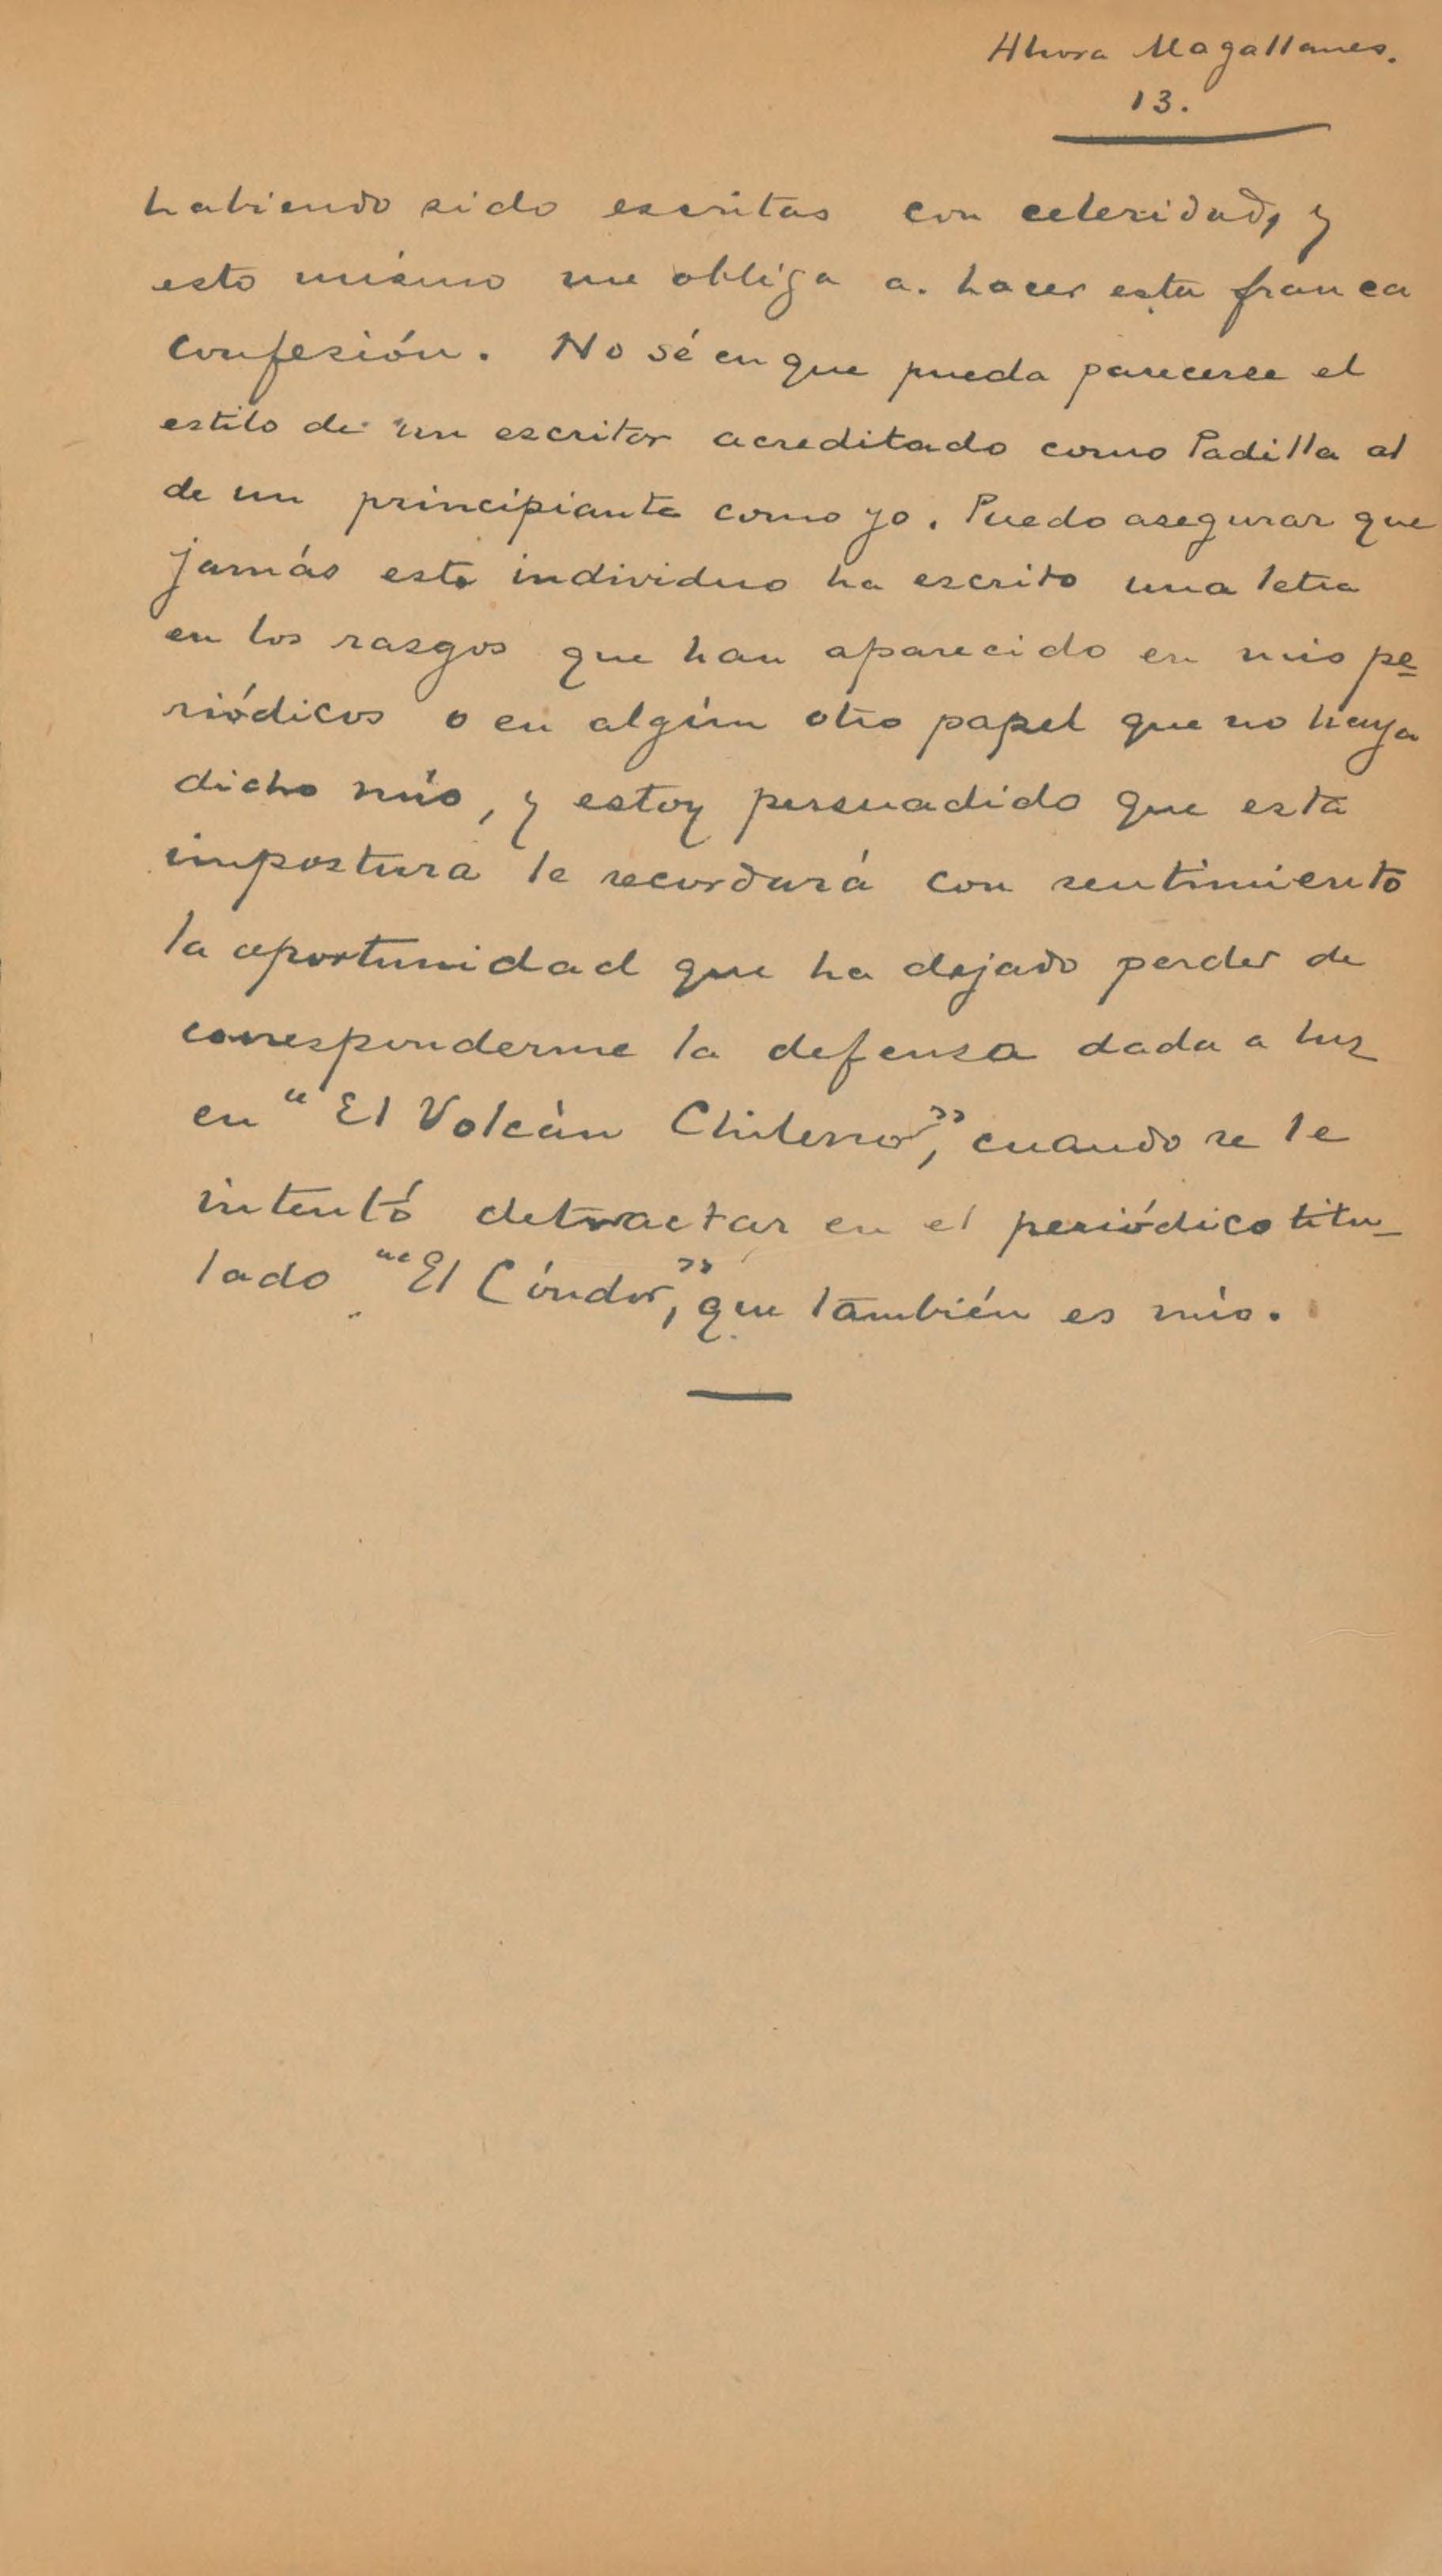 Ahora Magallanes.
13.
habiendo sido escritas con celeridad, y
esto mismo me obliga a. hacer esta franca
confesión. No sé en que pueda parecerse el
estilo de un escritor acreditado como Padilla al
de un principiante como yo. Puedo asegurar que
jamás este individuo ha escrito una letra
en los rasgos que han aparecido en mis pe-
riódicos o en algún otro papel que no haya
dicho mío, y estoy persuadido que esta
impostura le recordará con sentimiento
la oportunidad que ha dejado perder de
corresponderme la defensa dada a luz
en "El Volcán Chileno", cuando se le
intentó detractar en el periódico titu-
lado "El Cóndor", que también es mío.